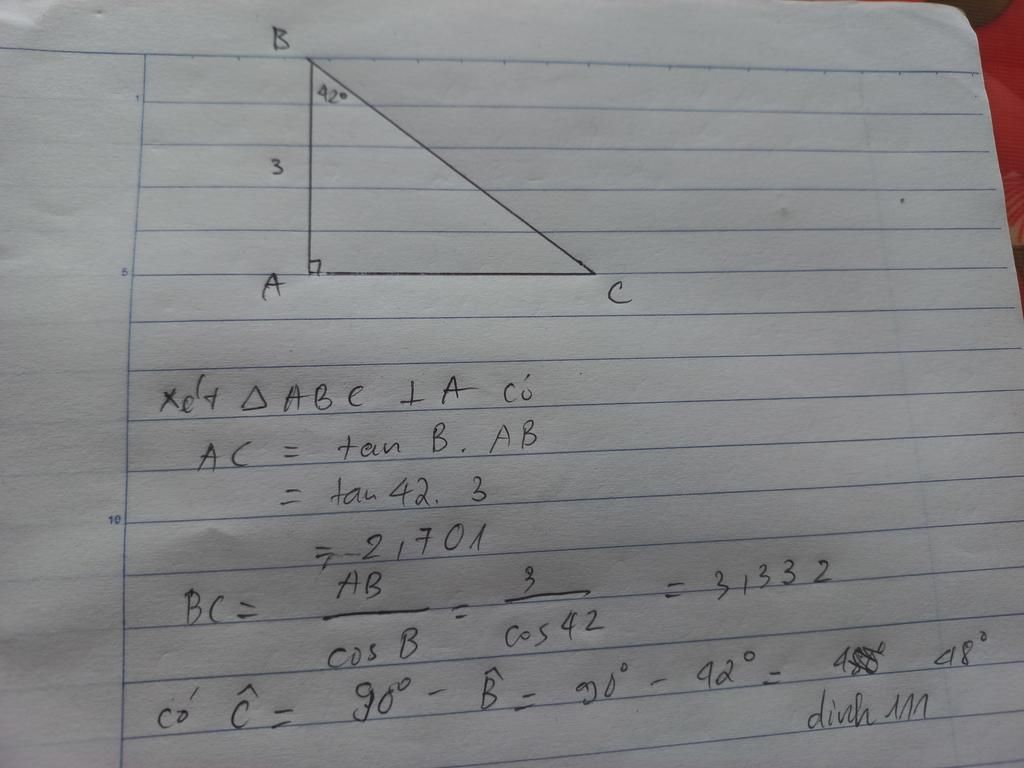 B
42°
3
A
C
5
xét Δ ABC ⊥ A có
AC = tan B. AB
= tan 42. 3
= 2,701
10
BC = AB / cos B = 3 / cos 42 = 3,332
có Ĉ = 90° - B̂ = 90° - 42° = 48°